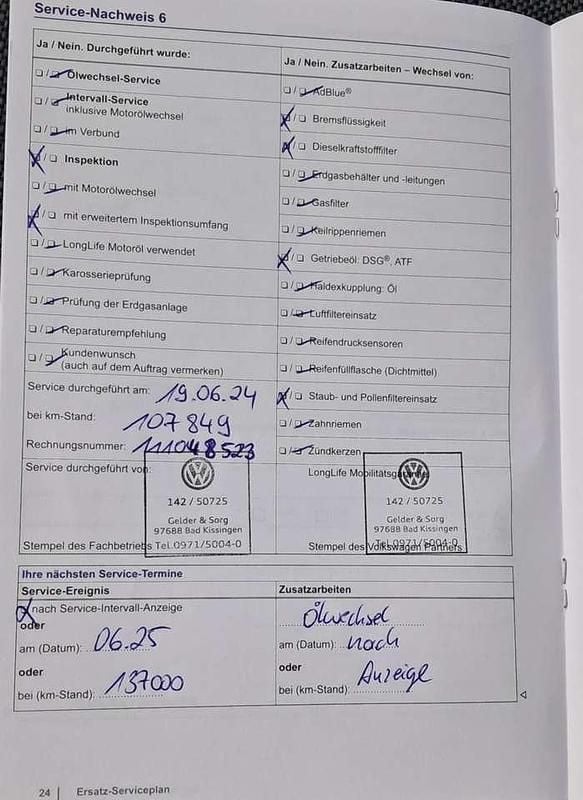 Service-Nachweis 6
Ja / Nein. Durchgeführt wurde:
❏ / ❏ Ölwechsel-Service
❏ / ❏ Intervall-Service
inklusive Motorölwechsel
❏ / ❏ im Verbund
❏ / ❏ Inspektion
❏ / ❏ mit Motorölwechsel
❏ / ❏ mit erweitertem Inspektionsumfang
❏ / ❏ LongLife Motoröl verwendet
❏ / ❏ Karosserieprüfung
❏ / ❏ Prüfung der Erdgasanlage
❏ / ❏ Reparaturempfehlung
❏ / ❏ Kundenwunsch
(auch auf dem Auftrag vermerken)
Service durchgeführt am: 19.06.24
bei km-Stand: 107 849
Rechnungsnummer: 11104 8523
Service durchgeführt von:
142 / 50725
Gelder & Sorg
97688 Bad Kissingen
Tel.0971/5004-0
Stempel des Fachbetriebs
Ja / Nein. Zusatzarbeiten – Wechsel von:
❏ / ❏ AdBlue®
❏ / ❏ Bremsflüssigkeit
❏ / ❏ Dieselkraftstofffilter
❏ / ❏ Erdgasbehälter und -leitungen
❏ / ❏ Gasfilter
❏ / ❏ Keilrippenriemen
❏ / ❏ Getriebeöl: DSG®, ATF
❏ / ❏ Haldexkupplung: Öl
❏ / ❏ Luftfiltereinsatz
❏ / ❏ Reifendrucksensoren
❏ / ❏ Reifenfüllflasche (Dichtmittel)
❏ / ❏ Staub- und Pollenfiltereinsatz
❏ / ❏ Zahnriemen
❏ / ❏ Zündkerzen
LongLife Mobilitätsgarantie
142 / 50725
Gelder & Sorg
97688 Bad Kissingen
Tel.0971/5004-0
Stempel des Volkswagen Partners
Ihre nächsten Service-Termine
Service-Ereignis
nach Service-Intervall-Anzeige
oder
am (Datum): 06.25
oder
bei (km-Stand): 137000
Zusatzarbeiten
Ölwechsel
am (Datum): nach
oder
Anzeige
bei (km-Stand):
24 | Ersatz-Serviceplan